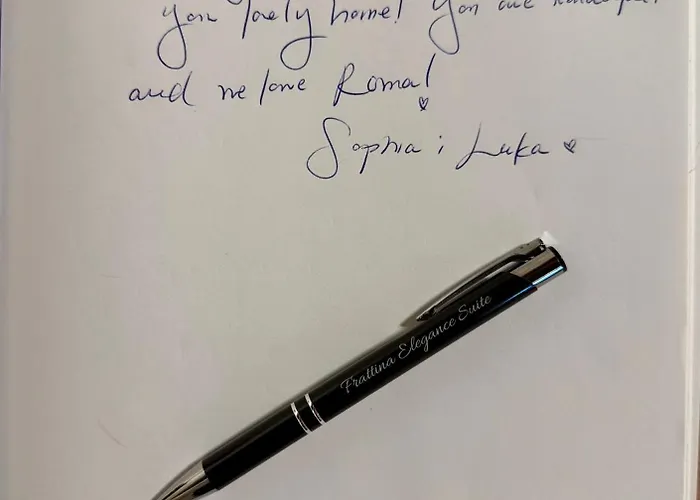 you lovely home! You are
and we love Roma!
Sophia i Luka
Frattina Elegance Suite